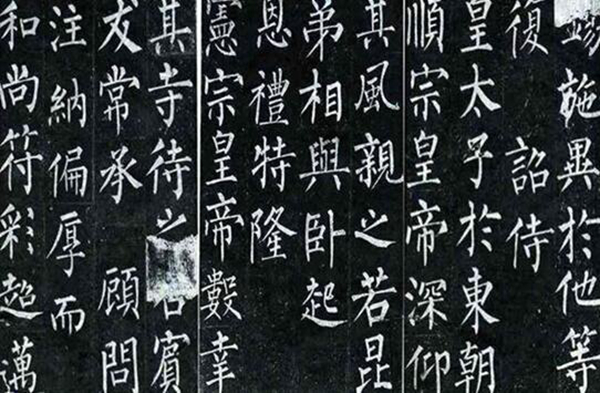 施異於他等
復 詔侍
皇太子於東朝
順宗皇帝深仰
其風親之若昆
弟相與卧起
恩禮特隆
憲宗皇帝數幸
其寺待之若賓
友常承 顧問
注納偏厚而
和尚符彩超邁